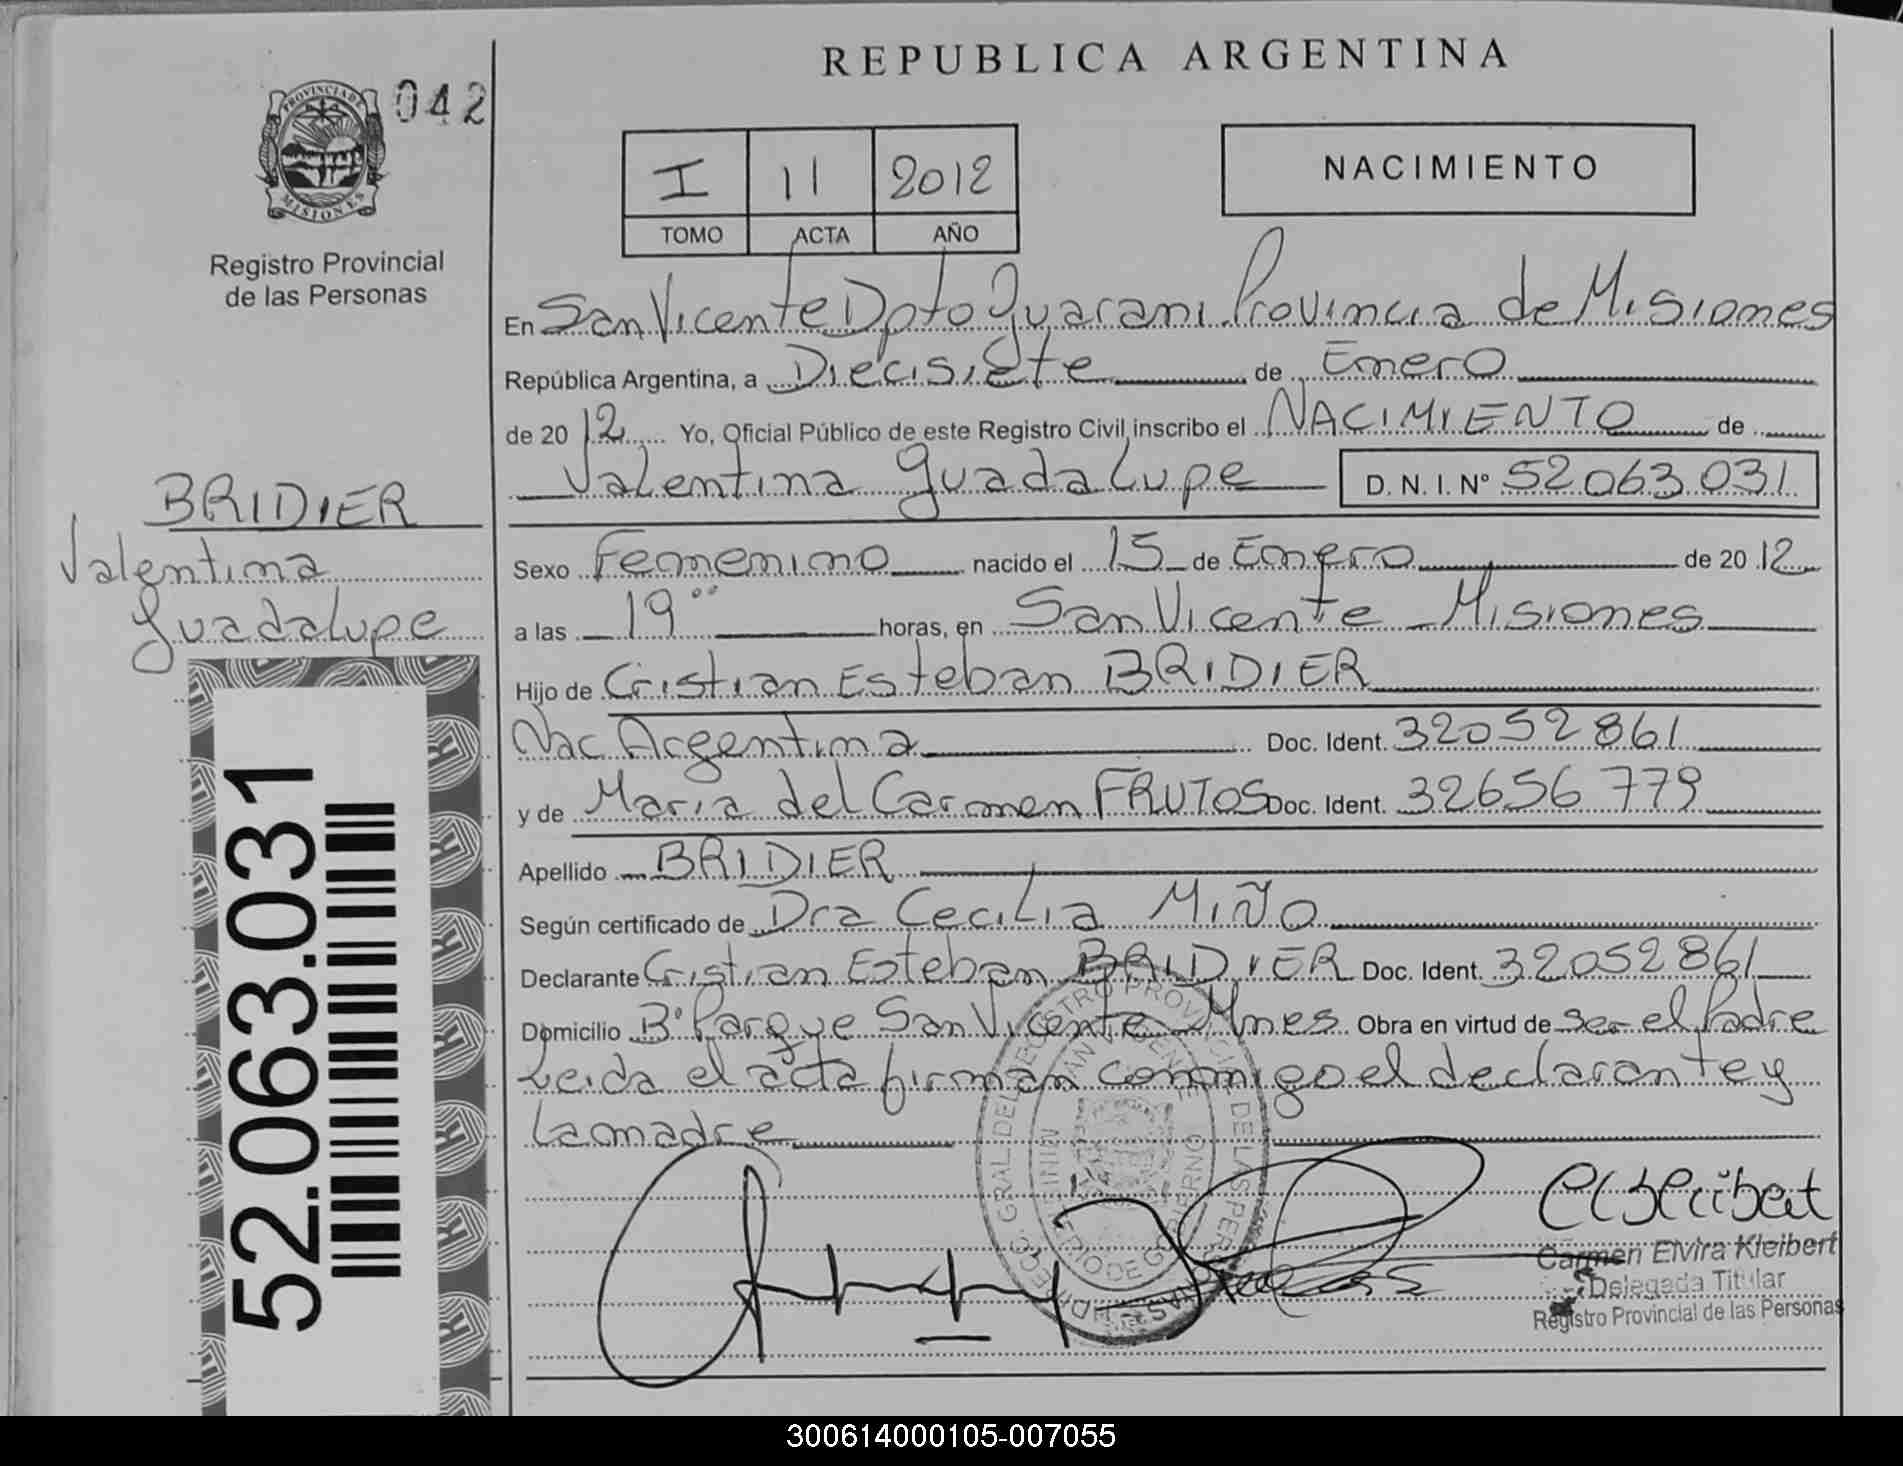 REPUBLICA ARGENTINA
PROVINCIA DE
MISIONES
042
Registro Provincial
de las Personas
I 11 2012
TOMO ACTA AÑO
NACIMIENTO
En San Vicente Dpto Guarani Provincia de Misiones
República Argentina, a Diecisiete de Enero
de 20 12 Yo, Oficial Público de este Registro Civil inscribo el NACIMIENTO de
Valentina Guadalupe D.N.I. Nº 52.063.031
BRIDIER
Valentina
Guadalupe
Sexo Femenino nacido el 15 de Enero de 20 12
a las 19°° horas, en San Vicente Misiones
Hijo de Cristian Esteban BRIDIER
Nac. Argentina Doc. Ident. 32052861
y de Maria del Carmen FRUTOS Doc. Ident. 32656779
Apellido BRIDIER
Según certificado de Dra Cecilia MIÑO
Declarante Cristian Esteban BRIDIER Doc. Ident. 32052861
Domicilio B° Parque San Vicente Mnes Obra en virtud de ser el Padre
Leida el acta firman conmigo el declarante y
La madre
52.063.031
Carmen Elvira Kleibert
Delegada Titular
Registro Provincial de las Personas
300614000105-007055